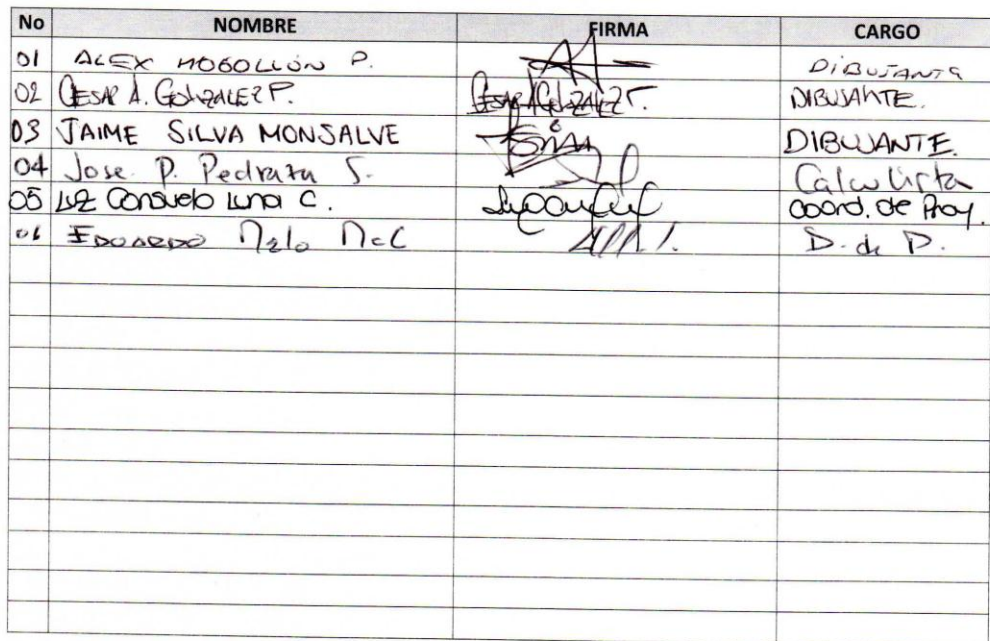 No NOMBRE FIRMA CARGO
01 ALEX MOGOLLÓN P. DIBUJANTE
02 CESAR A. GONZALEZ P. CESAR A GONZALEZ P. DIBUJANTE.
03 JAIME SILVA MONSALVE DIBUJANTE.
04 Jose P. Pedraza S. Calculista
05 Luz Consuelo Luna C. Coord. de Proy.
06 EDUARDO Melo D. de P.